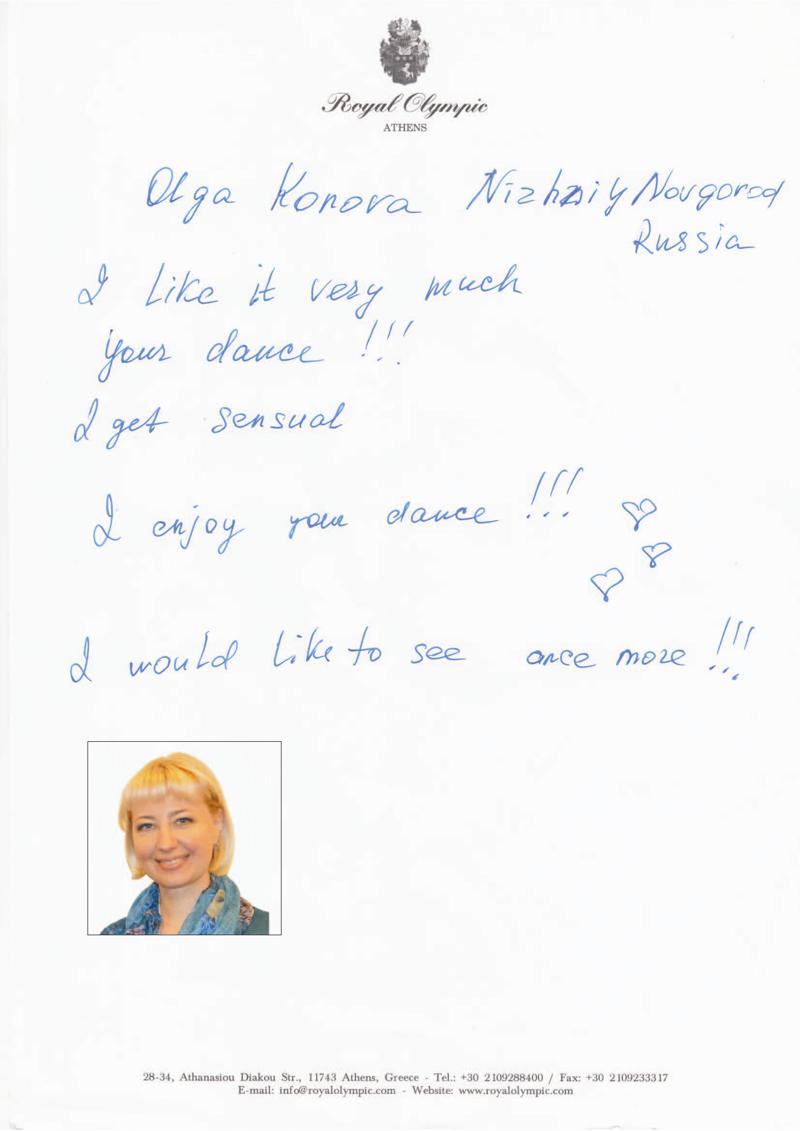 Royal Olympic
ATHENS
Olga Konova Nizhniy Novgorod
Russia
I like it very much
your dance !!!
I get sensual
I enjoy your dance !!!
I would like to see once more !!!
28-34, Athanasiou Diakou Str., 11743 Athens, Greece - Tel.: +30 2109288400 / Fax: +30 2109233317
E-mail: info@royalolympic.com - Website: www.royalolympic.com